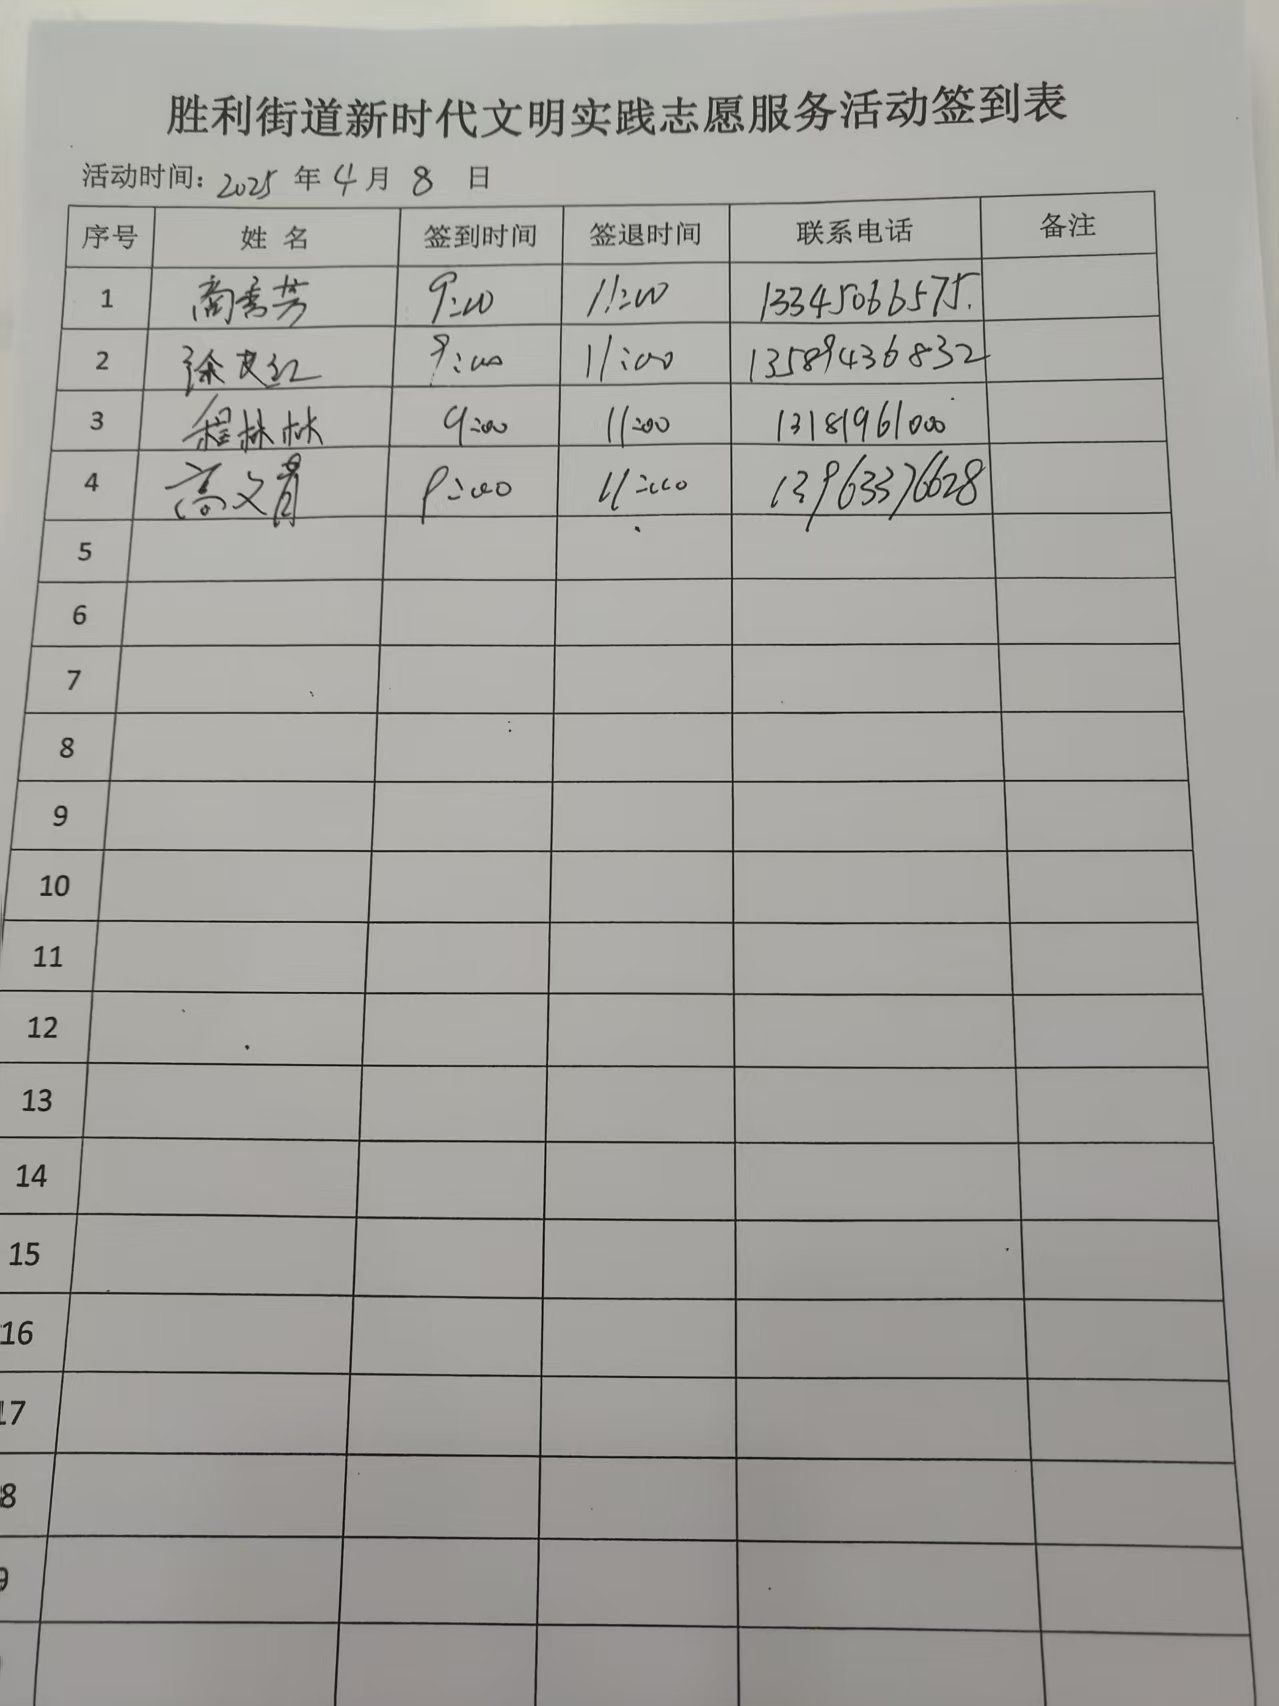 胜利街道新时代文明实践志愿服务活动签到表
活动时间: 2025 年 4 月 8 日
序号 姓名 签到时间 签退时间 联系电话 备注
1 商秀芳 9:00 11:00 13345066575.
2 徐艾红 9:00 11:00 13589436832
3 程林林 9:00 11:00 13181961000
4 高文青 9:00 11:00 13963376628
5
6
7
8
9
10
11
12
13
14
15
16
17
8
9